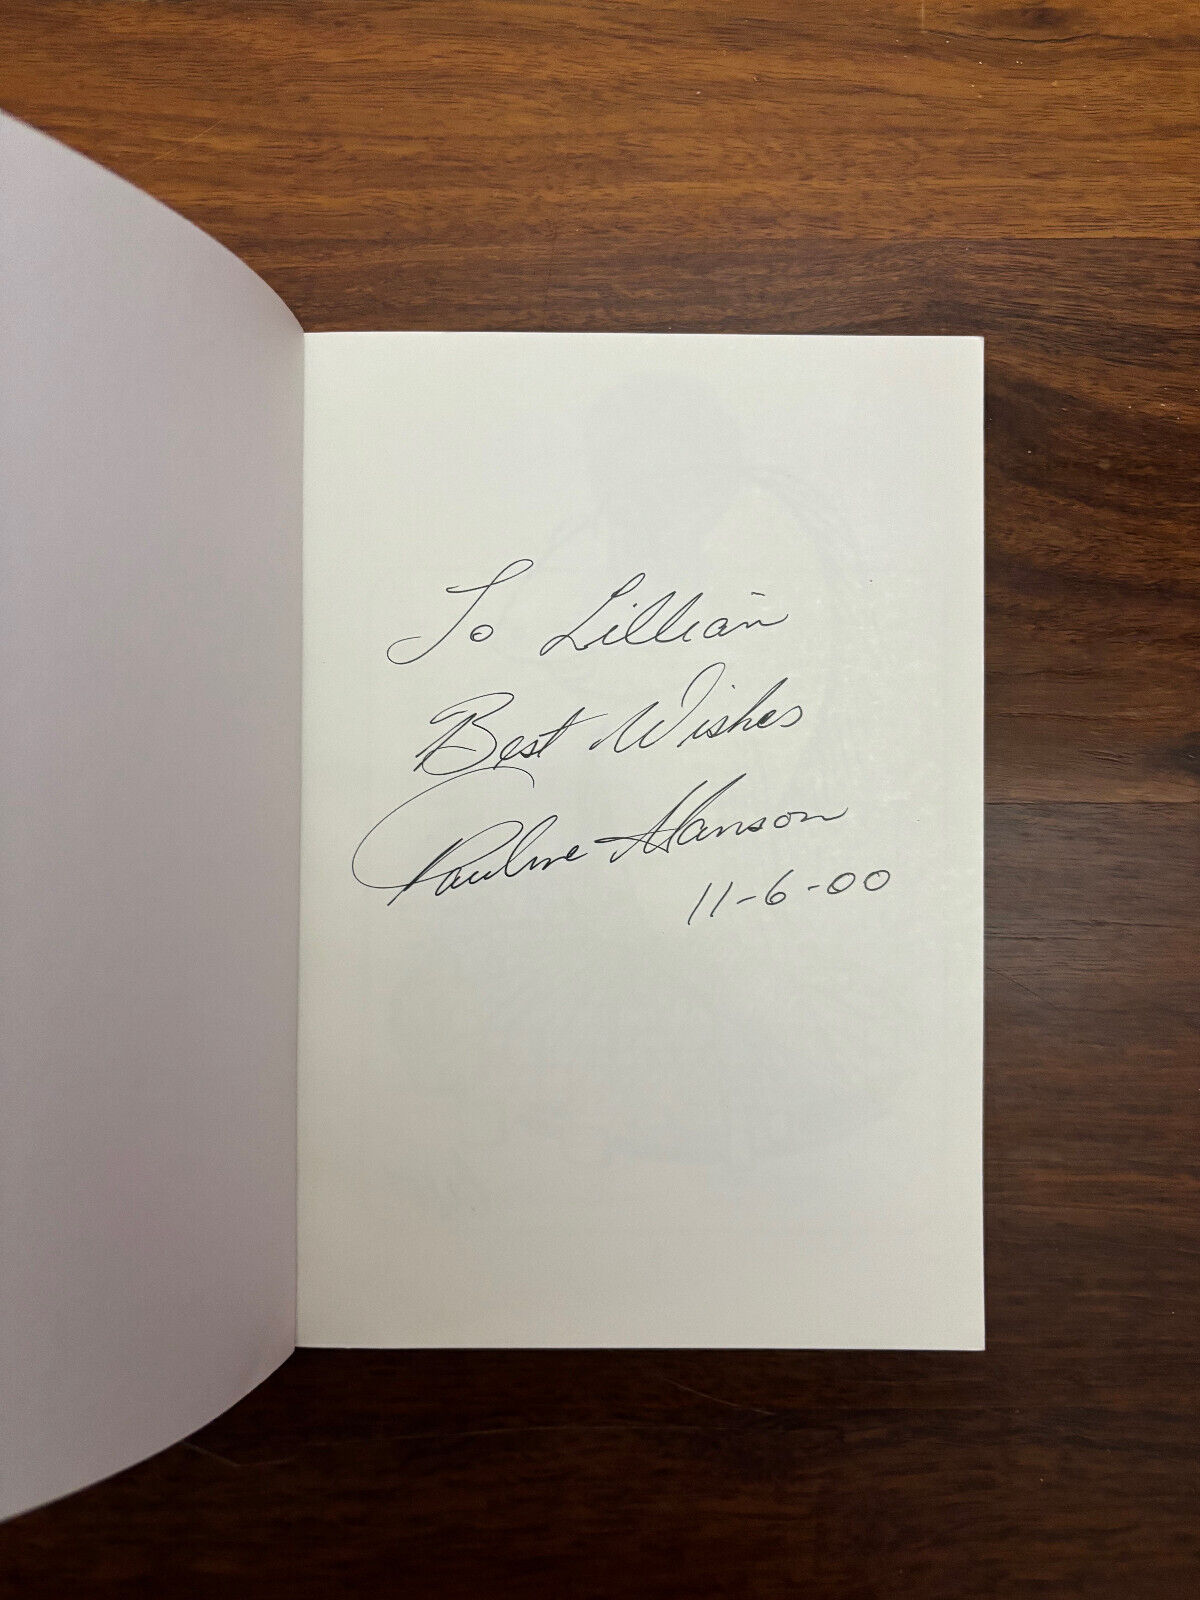 To Lillian
Best Wishes
Pauline Hanson
11-6-00